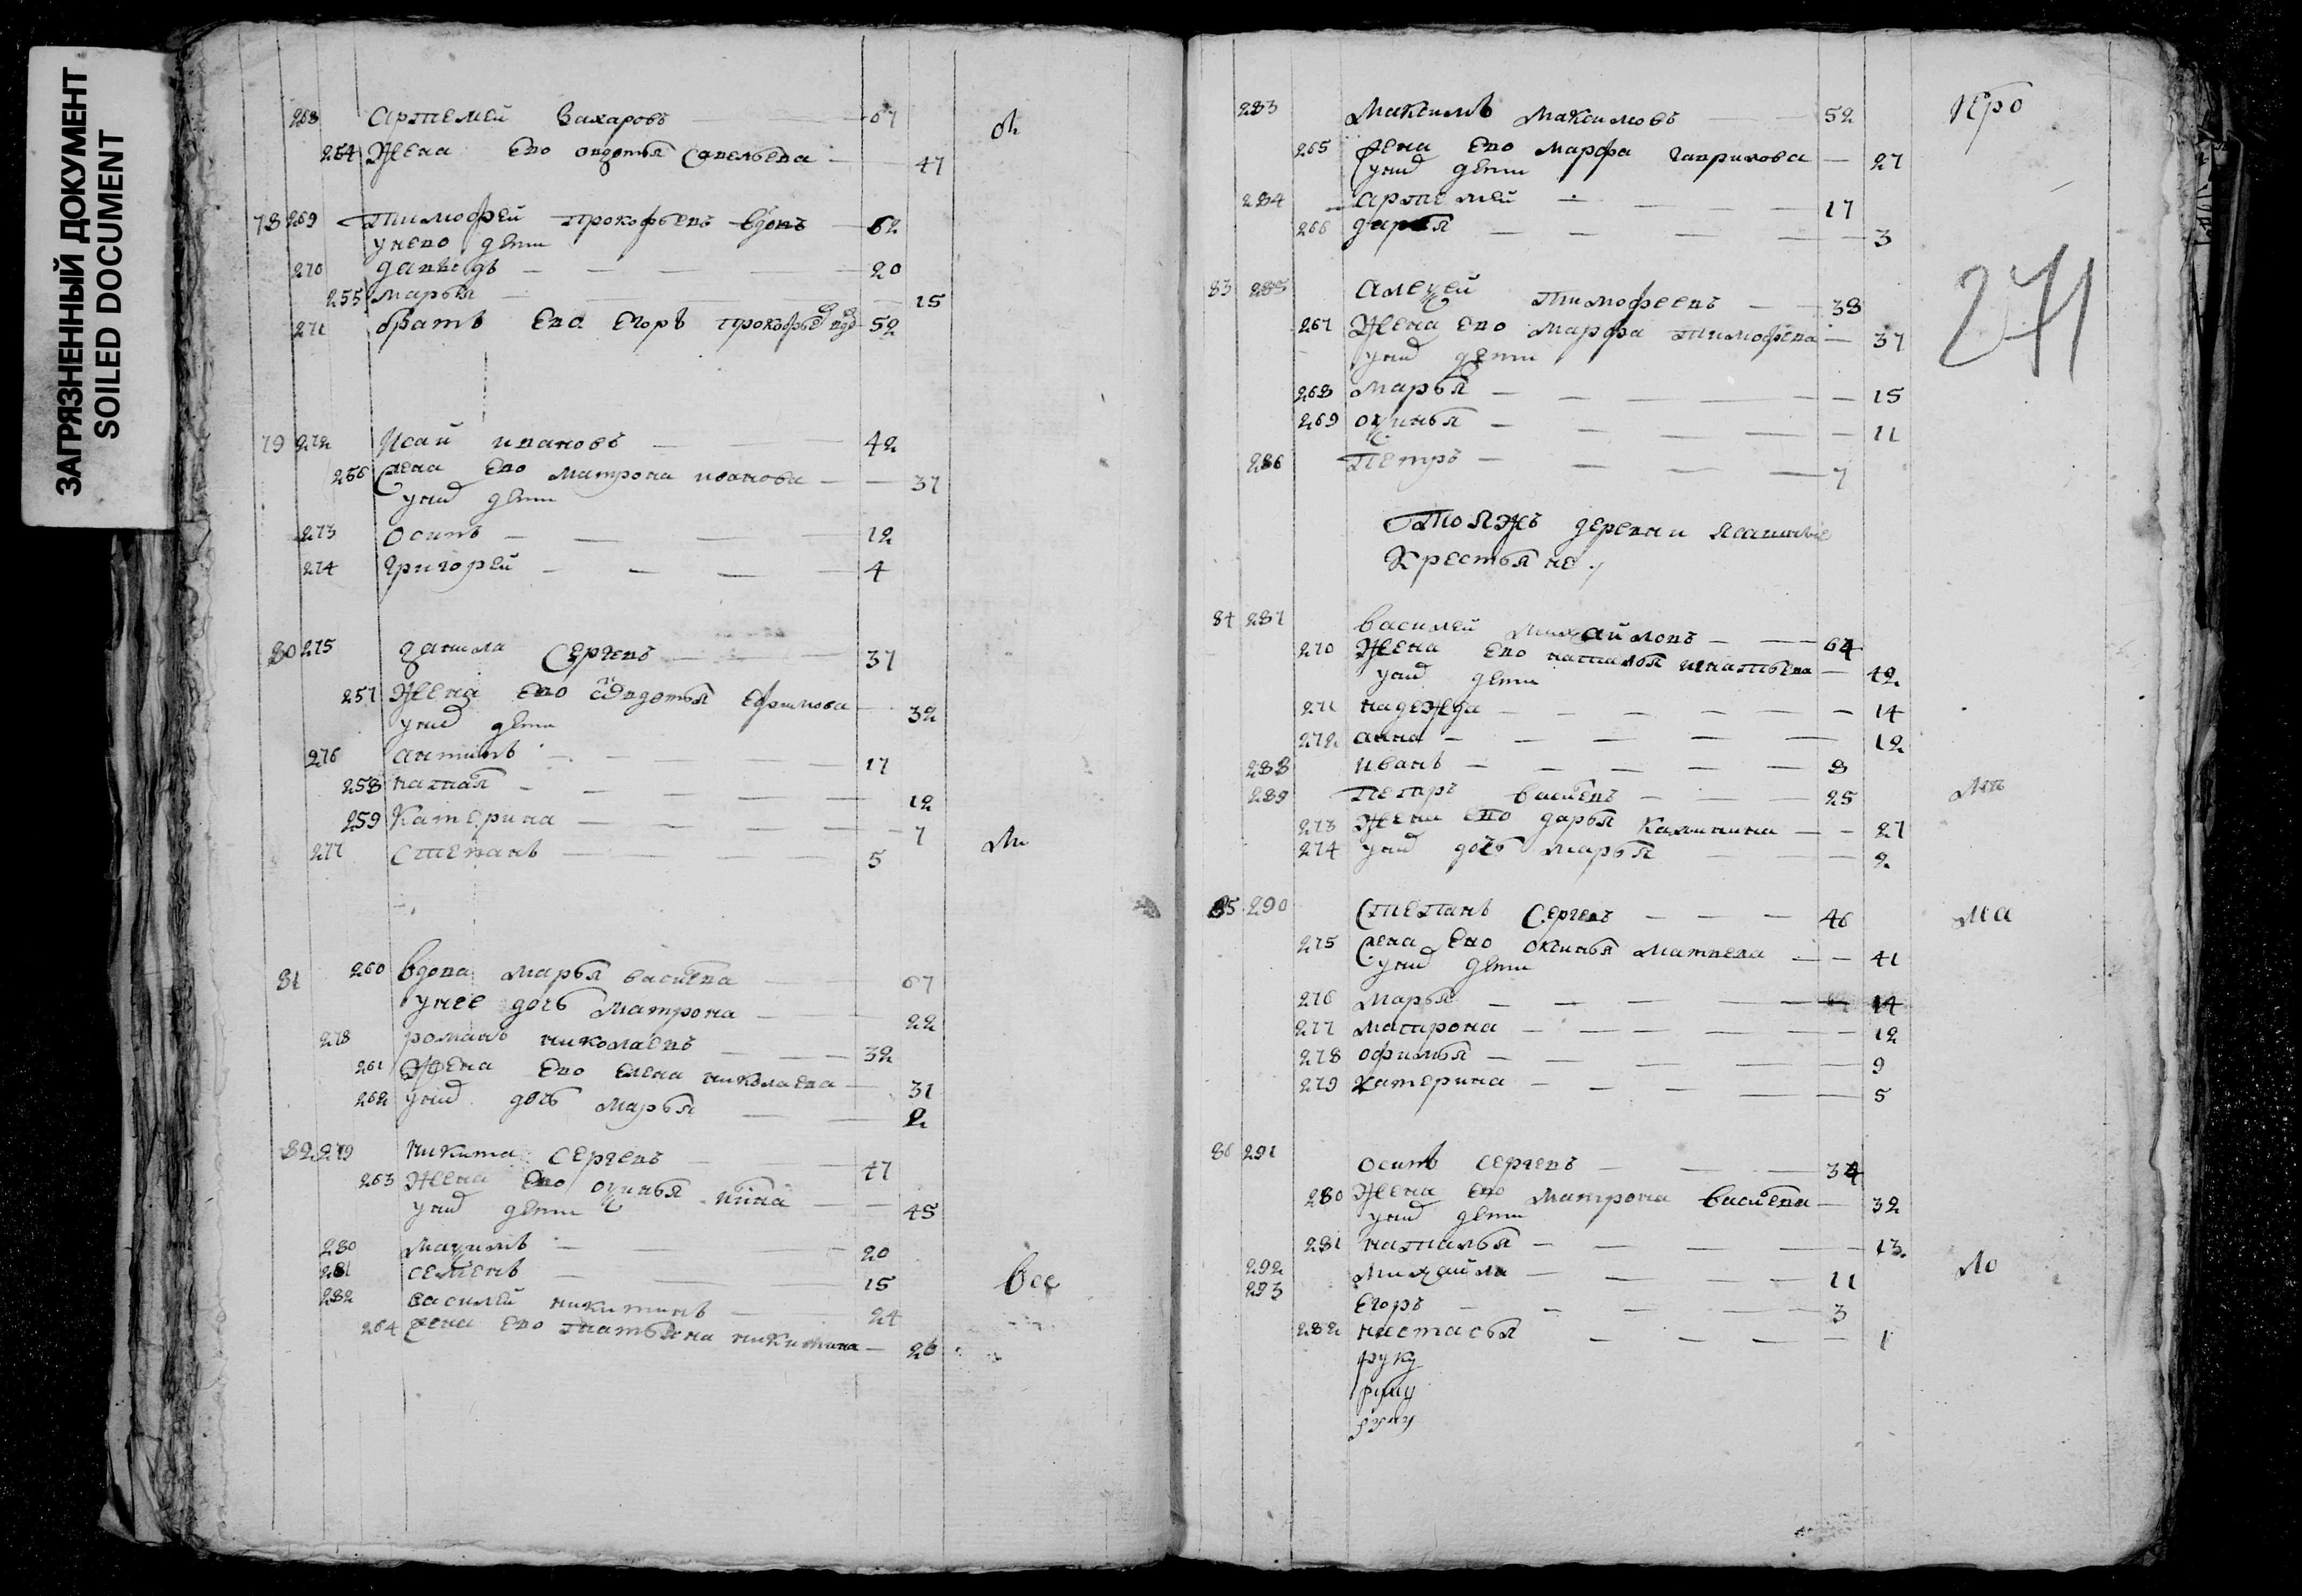 ЗАГРЯЗНЕННЫЙ ДОКУМЕНТ
SOILED DOCUMENT
268 Артемей Захаровъ 67
254 Жена ево авдотья савельева 47
78 269 Тимофей Прокофьевъ вдовъ 62
унево дети
270 давыдъ 20
255 марья 15
271 братъ ево Егоръ прокофьев 52
79 272 Исай ивановъ 42
256 Жена ево матрона иванова 37
уних дети
273 Осипъ 12
274 григорей 4
80 275 данила Сергеевъ 37
257 Жена ево авдотья ефимова 32
уних дети
276 антипъ 17
258 наталья 12
259 Катерина 7
277 Степанъ 5
81 260 вдова марья васильева 67
унее дочь матрона 22
278 романъ николаевъ 32
261 Жена ево елена николаева 31
262 уних дочь марья 2
82 279 никита Сергеевъ 47
263 Жена ево 45
уних дети
280 20
281 семенъ 15
282 василей никитинъ 24
264 жена ево татьяна никитина 26
283 Максимъ Максимовъ 52
265 Жена ево марфа гаврилова 27
уних дети
284 артемей 17
266 дарья 3
83 285 Алексей Тимофеевъ 38
267 Жена ево марфа тимофеева 37
уних дети
268 марья 15
269 11
286 Петръ 7
Тояжъ деревни ясашные
Крестьяне
84 287 василей михайловъ 64
270 Жена ево наталья игнатьева 42
уних дети
271 надежда 14
272 анна 12
288 иванъ 8
289 Петръ васильевъ 25
273 Жена ево дарья калинина 27
274 уних дочь марья 2
85 290 Степанъ Сергеевъ 46
275 Жена ево оксинья матвеева 41
уних дети
276 марья 14
277 матрона 12
278 офимья 9
279 катерина 5
86 291 осипъ сергеевъ 34
280 Жена ево матрона васильева 32
уних дети
281 наталья 13
292 михайла 11
293 Егоръ 3
282 настасья 1
Про
271
ма
ло